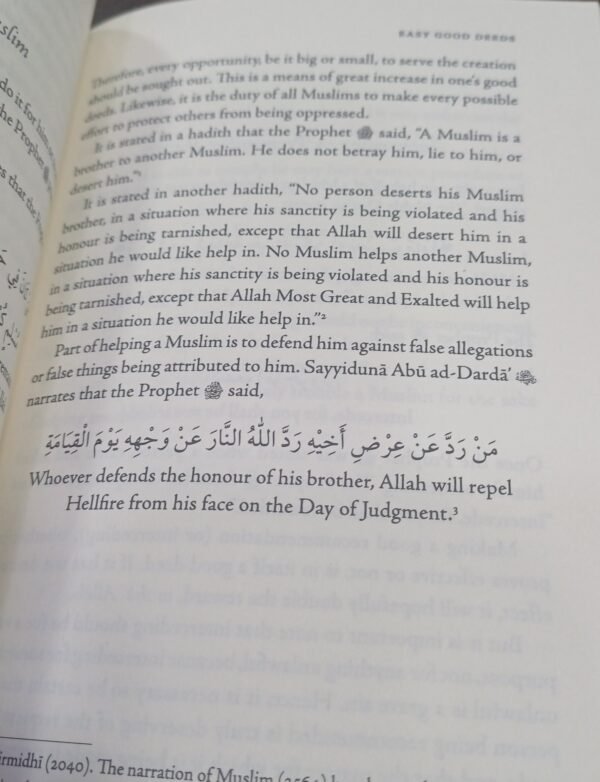 EASY GOOD DEEDS
Therefore, every opportunity, be it big or small, to serve the creation
should be sought out. This is a means of great increase in one's good
deeds. Likewise, it is the duty of all Muslims to make every possible
effort to protect others from being oppressed.
It is stated in a hadith that the Prophet ﷺ said, “A Muslim is a
brother to another Muslim. He does not betray him, lie to him, or
desert him.”¹
It is stated in another hadith, “No person deserts his Muslim
brother, in a situation where his sanctity is being violated and his
honour is being tarnished, except that Allah will desert him in a
situation he would like help in. No Muslim helps another Muslim,
in a situation where his sanctity is being violated and his honour is
being tarnished, except that Allah Most Great and Exalted will help
him in a situation he would like help in.”²
Part of helping a Muslim is to defend him against false allegations
or false things being attributed to him. Sayyidunā Abū ad-Dardā’
narrates that the Prophet ﷺ said,
مَنْ رَدَّ عَنْ عِرْضِ أَخِيْهِ رَدَّ اللّٰهُ النَّارَ عَنْ وَجْهِهِ يَوْمَ الْقِيَامَةِ
Whoever defends the honour of his brother, Allah will repel
Hellfire from his face on the Day of Judgment.³
(2040). The narration of Muslim